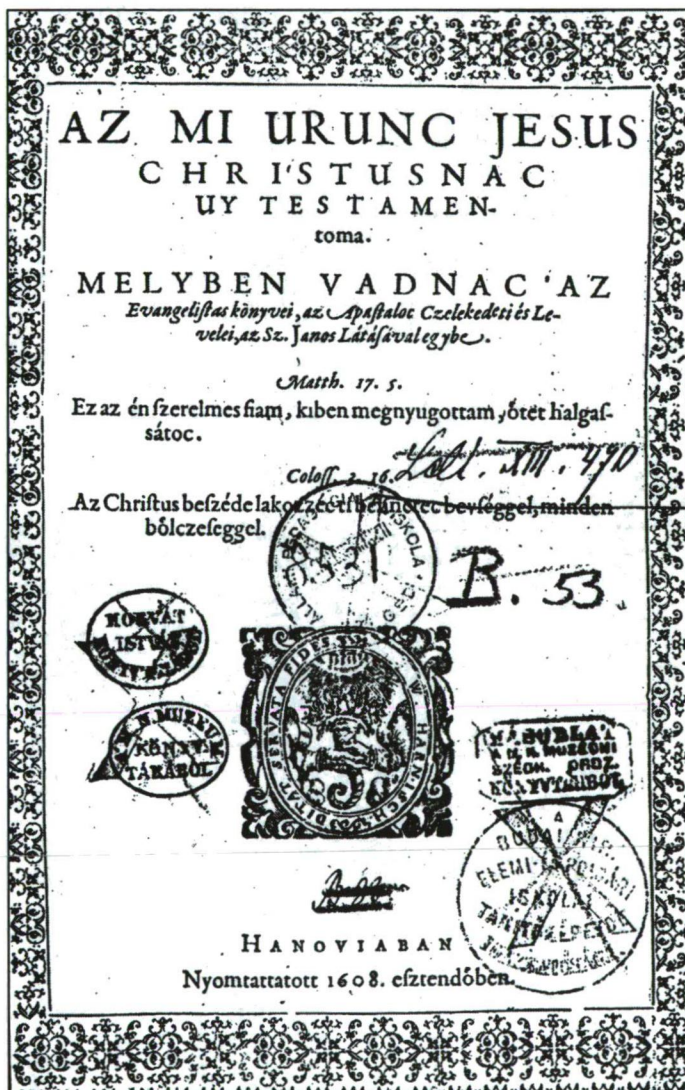 AZ MI URUNC JESUS
CHRISTUSNAC
UY TESTAMEN-
toma.
MELYBEN VADNAC AZ
Evangeliſtas könyvei, az Apaſtaloc Czelekedeti és Le-
velei, az Sz. Janos Látáſával egybe.
Matth. 17. 5.
Ez az én ſzerelmes fiam, kiben megnyugottam, ötet halgaſ-
sátoc.
Coloſſ. 3. 16.
XIII. 490
Az Chriſtus beſzéde lakozzéc ti bennetec bevſéggel, minden
bölczeſeggel.
ISKOLA
5531
B. 53
HORVÁT
ISTVÁN
DITAT SERVATA FIDES
N. MUZEUM
KÖNYV-
TÁRÁBÓL
MUZEUMI
SZÉCH. ORSZ.
KÖNYVTÁRIBÓL
A
ELEMI
ISKOLAI
HANOVIABAN
Nyomtattatott 1608. eſztendőben.